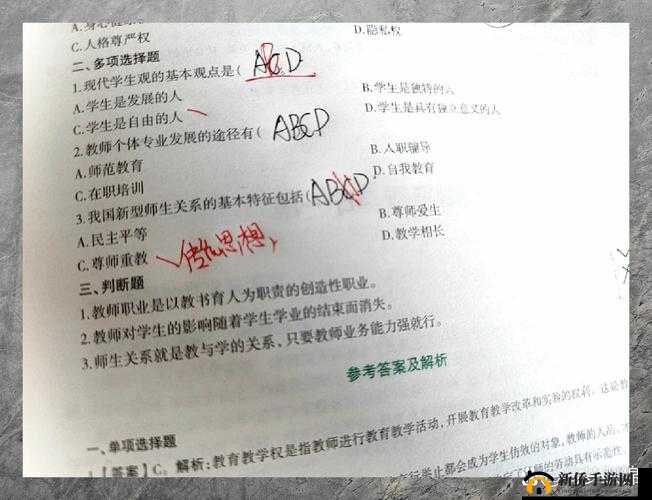 C.人格尊严权
D.隐私权
二、多项选择题
1.现代学生观的基本观点是( ABCD
A.学生是发展的人
B.学生是独特的人
C.学生是自由的人
D.学生是具有独立意义的人
2.教师个体专业发展的途径有( ABCD
A.师范教育
B.入职辅导
C.在职培训
D.自我教育
3.我国新型师生关系的基本特征包括(ABCD
A.民主平等
B.尊师爱生
C.尊师重教
传统思想
D.教学相长
三、判断题
1.教师职业是以教书育人为职责的创造性职业。
2.教师对学生的影响随着学生学业的结束而消失。
3.师生关系就是教与学的关系,只要教师业务能力强就行。
参考答案及解析
一、单项选择题
1.【答案】C。解析:教育教学权是指教师进行教育教学活动,开展教育教学改革和实验的权利。这是教
言行举止都会成为学生仿效的对象,教师的人品、
的劳动具有示范性。
新侨手游网